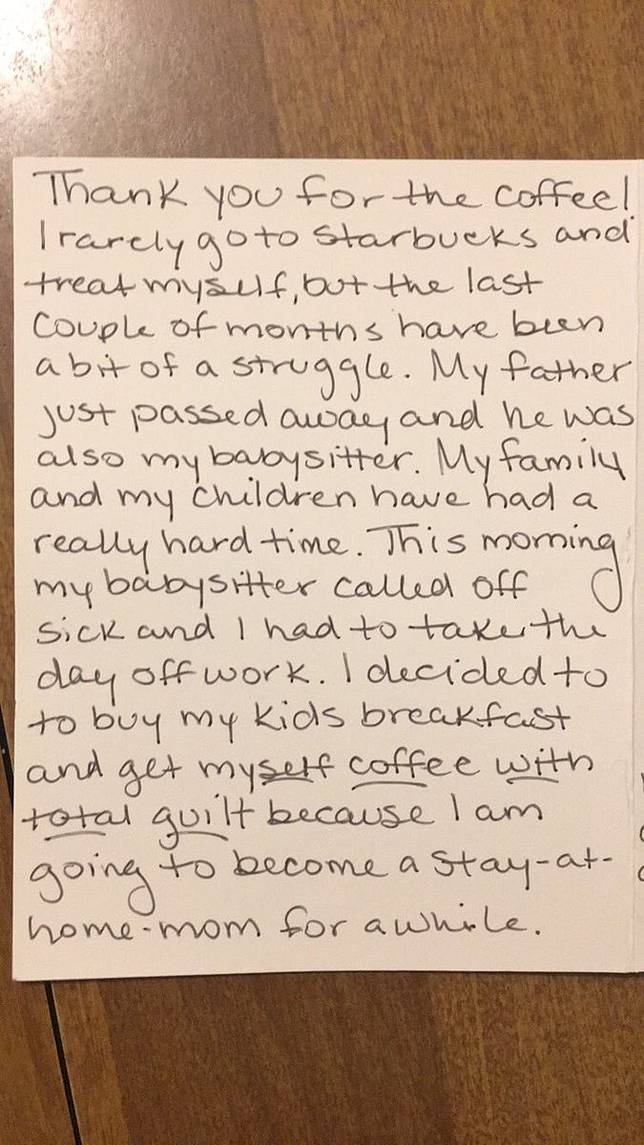 Thank you for the coffee!
I rarely go to Starbucks and
treat myself, but the last
couple of months have been
a bit of a struggle. My father
just passed away and he was
also my babysitter. My family
and my children have had a
really hard time. This morning
my babysitter called off
sick and I had to take the
day off work. I decided to
to buy my kids breakfast
and get myself coffee with
total guilt because I am
going to become a stay-at-
home-mom for awhile.